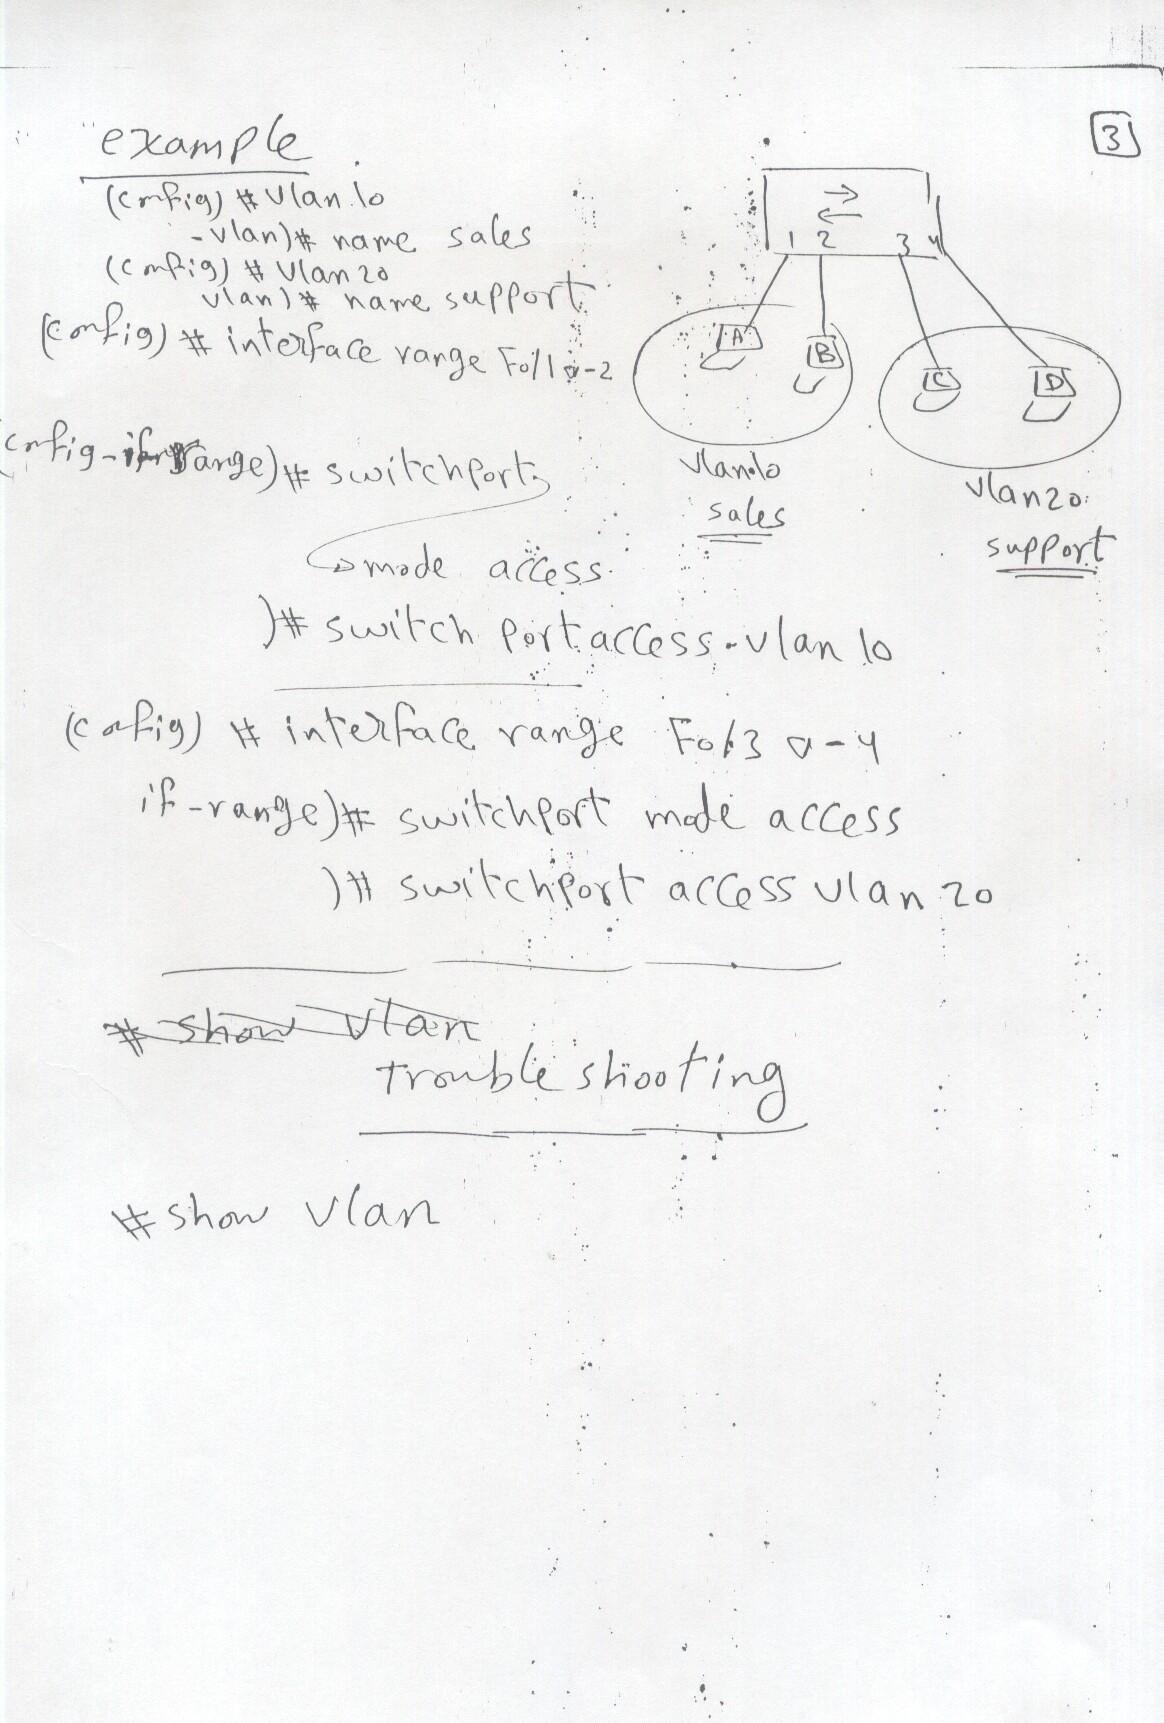 example
3
(config) # vlan 10
-vlan)# name sales
(config) # vlan 20
vlan) # name support
(config) # interface range Fo/1 -2
config-if-range)# switchport
mode access
)# switch port access vlan 10
(config) # interface range Fo/3 -4
if-range)# switchport mode access
)# switchport access vlan 20
# show vlan
trouble shooting
# show vlan
1 2 3 4
A B C D
vlan 10
sales
vlan 20
support